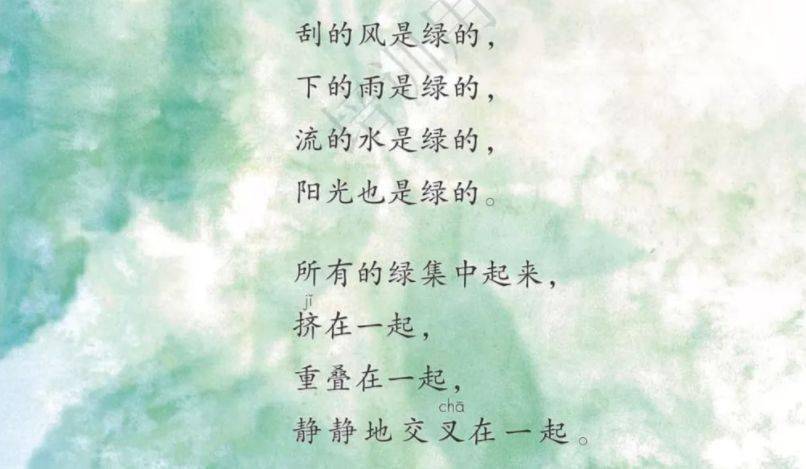 刮的风是绿的，
下的雨是绿的，
流的水是绿的，
阳光也是绿的。
所有的绿集中起来，
jǐ
挤在一起，
重叠在一起，
chā
静静地交叉在一起。